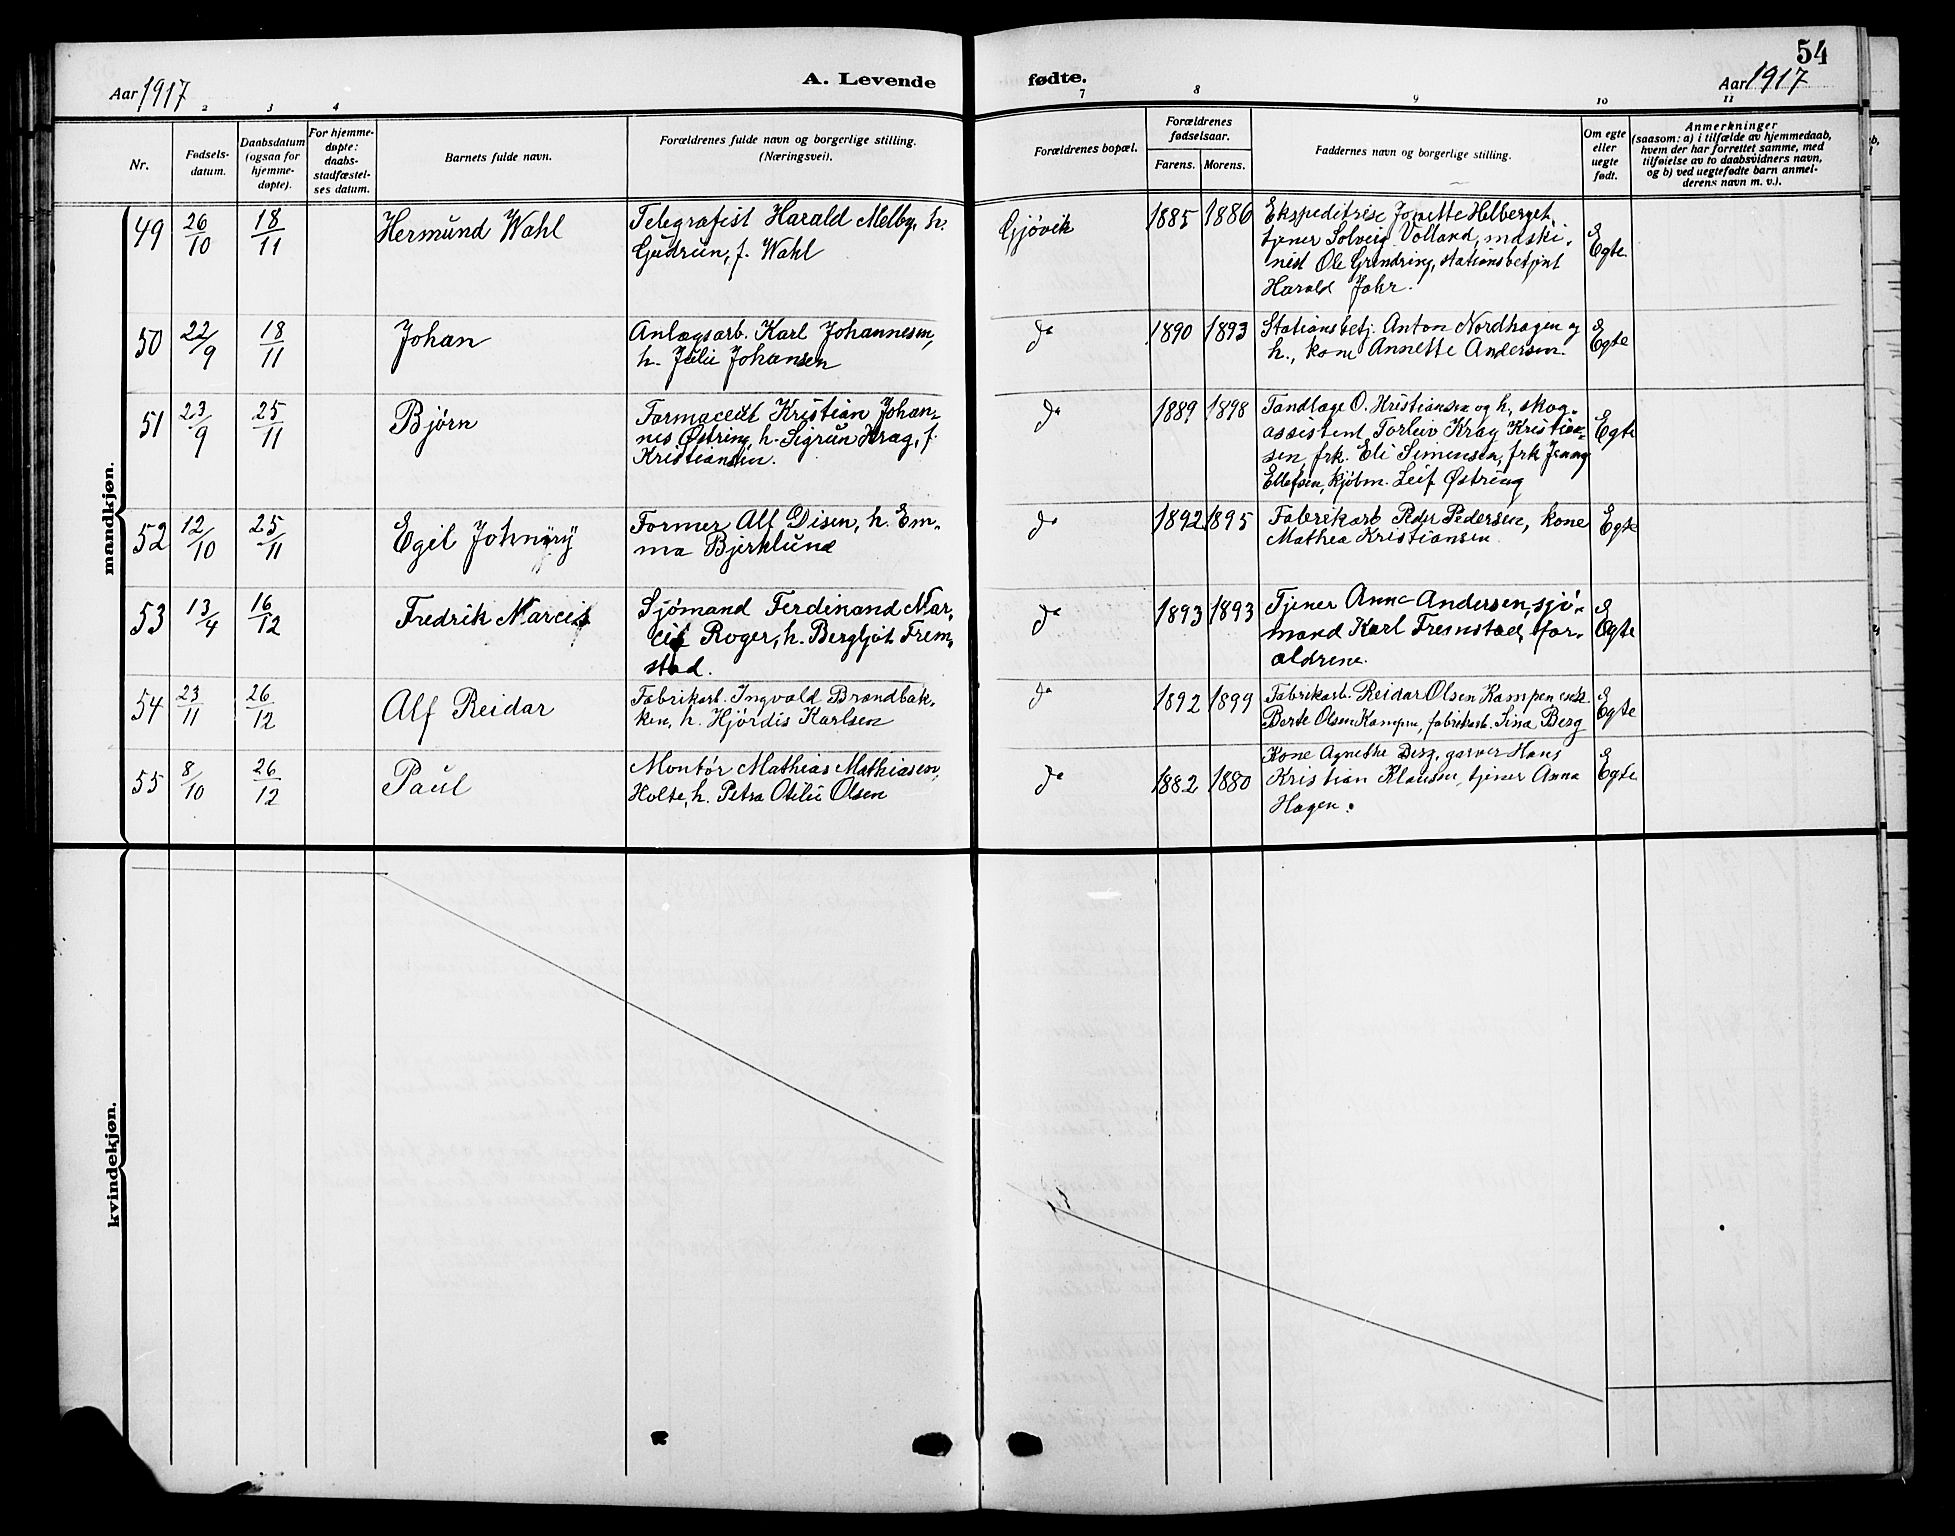 54
Aar 1917
A. Levende
fødte.
Aar 1917
2 3 4 7 8 9 10 11
Nr.
Fødsels-
datum.
Daabsdatum
(ogsaa for
hjemme-
døpte).
For hjemme-
døpte:
daabs-
stadfæstel-
ses datum.
Barnets fulde navn.
Forældrenes fulde navn og borgerlige stilling.
(Næringsvei).
Forældrenes bopæl.
Forældrenes
fødselsaar.
Farens. Morens.
Faddernes navn og borgerlige stilling.
Om egte
eller
uegte
født.
Anmerkninger
(saasom: a) i tilfælde av hjemmedaab,
hvem der har forrettet samme, med
tilføielse av to daabsvidners navn,
og b) ved uegtefødte barn anmel-
derens navn m. v.).
mandkjøn.
49 26/10 18/11 Hermund Wahl
Telegrafist Harald Melby, h.
Gudrun, f. Wahl
Gjøvik 1885 1886
Ekspeditrise Jonette Helberget,
tjener Solveig Volland, maski-
nist Ole Grindring, stationsbetjnt
Harald Johr.
Egte
50 22/9 18/11 Johan
Anlægsarb. Karl Johannesen,
h. Julie Johansen
do 1890 1893
Stationsbetj. Anton Nordhagen og
h., kone Annette Andersen.
Egte
51 23/9 25/11 Bjørn
Farmaceut Kristian Johan-
nes Østring, h. Sigrun Krag, f.
Kristiansen.
do 1889 1898
Tandlæge O. Kristiansen og h., skog-
assistent Torleiv Krag Kristian-
sen, frk. Eli Simensen, frk Jenny
Ellefsen, kjøbm. Leif Østring
Egte
52 12/10 25/11 Egil Johnny
Former Alf Disen, h. Em-
ma Bjerklund
do 1892 1895
Fabrikarb Peder Pedersen, kone
Mathea Kristiansen
Egte
53 13/4 16/12 Fredrik Narcis
Sjømand Ferdinand Nar-
cis Roger, h. Bergljot Frem-
stad.
do 1893 1893
Tjener Anna Andersen, sjø-
mand Karl Fremstad, for-
ældrene.
Egte
54 23/11 26/12 Alf Reidar
Fabrikarb. Ingvald Brændbak-
ken, h. Hjørdis Karlsen
do 1892 1899
Fabrikarb. Reidar Olsen Kampen,
Berte Olsen Kampen, fabrikarb. Sina Berg
Egte
55 8/10 26/12 Paul
Montør Mathias Mathiasen
Holte, h. Petra Otilie Olsen
do 1882 1880
Kone Agnethe Berg, garver Hans
Kristian Klausen, tjener Anna
Hagen.
Egte
kvindekjøn.